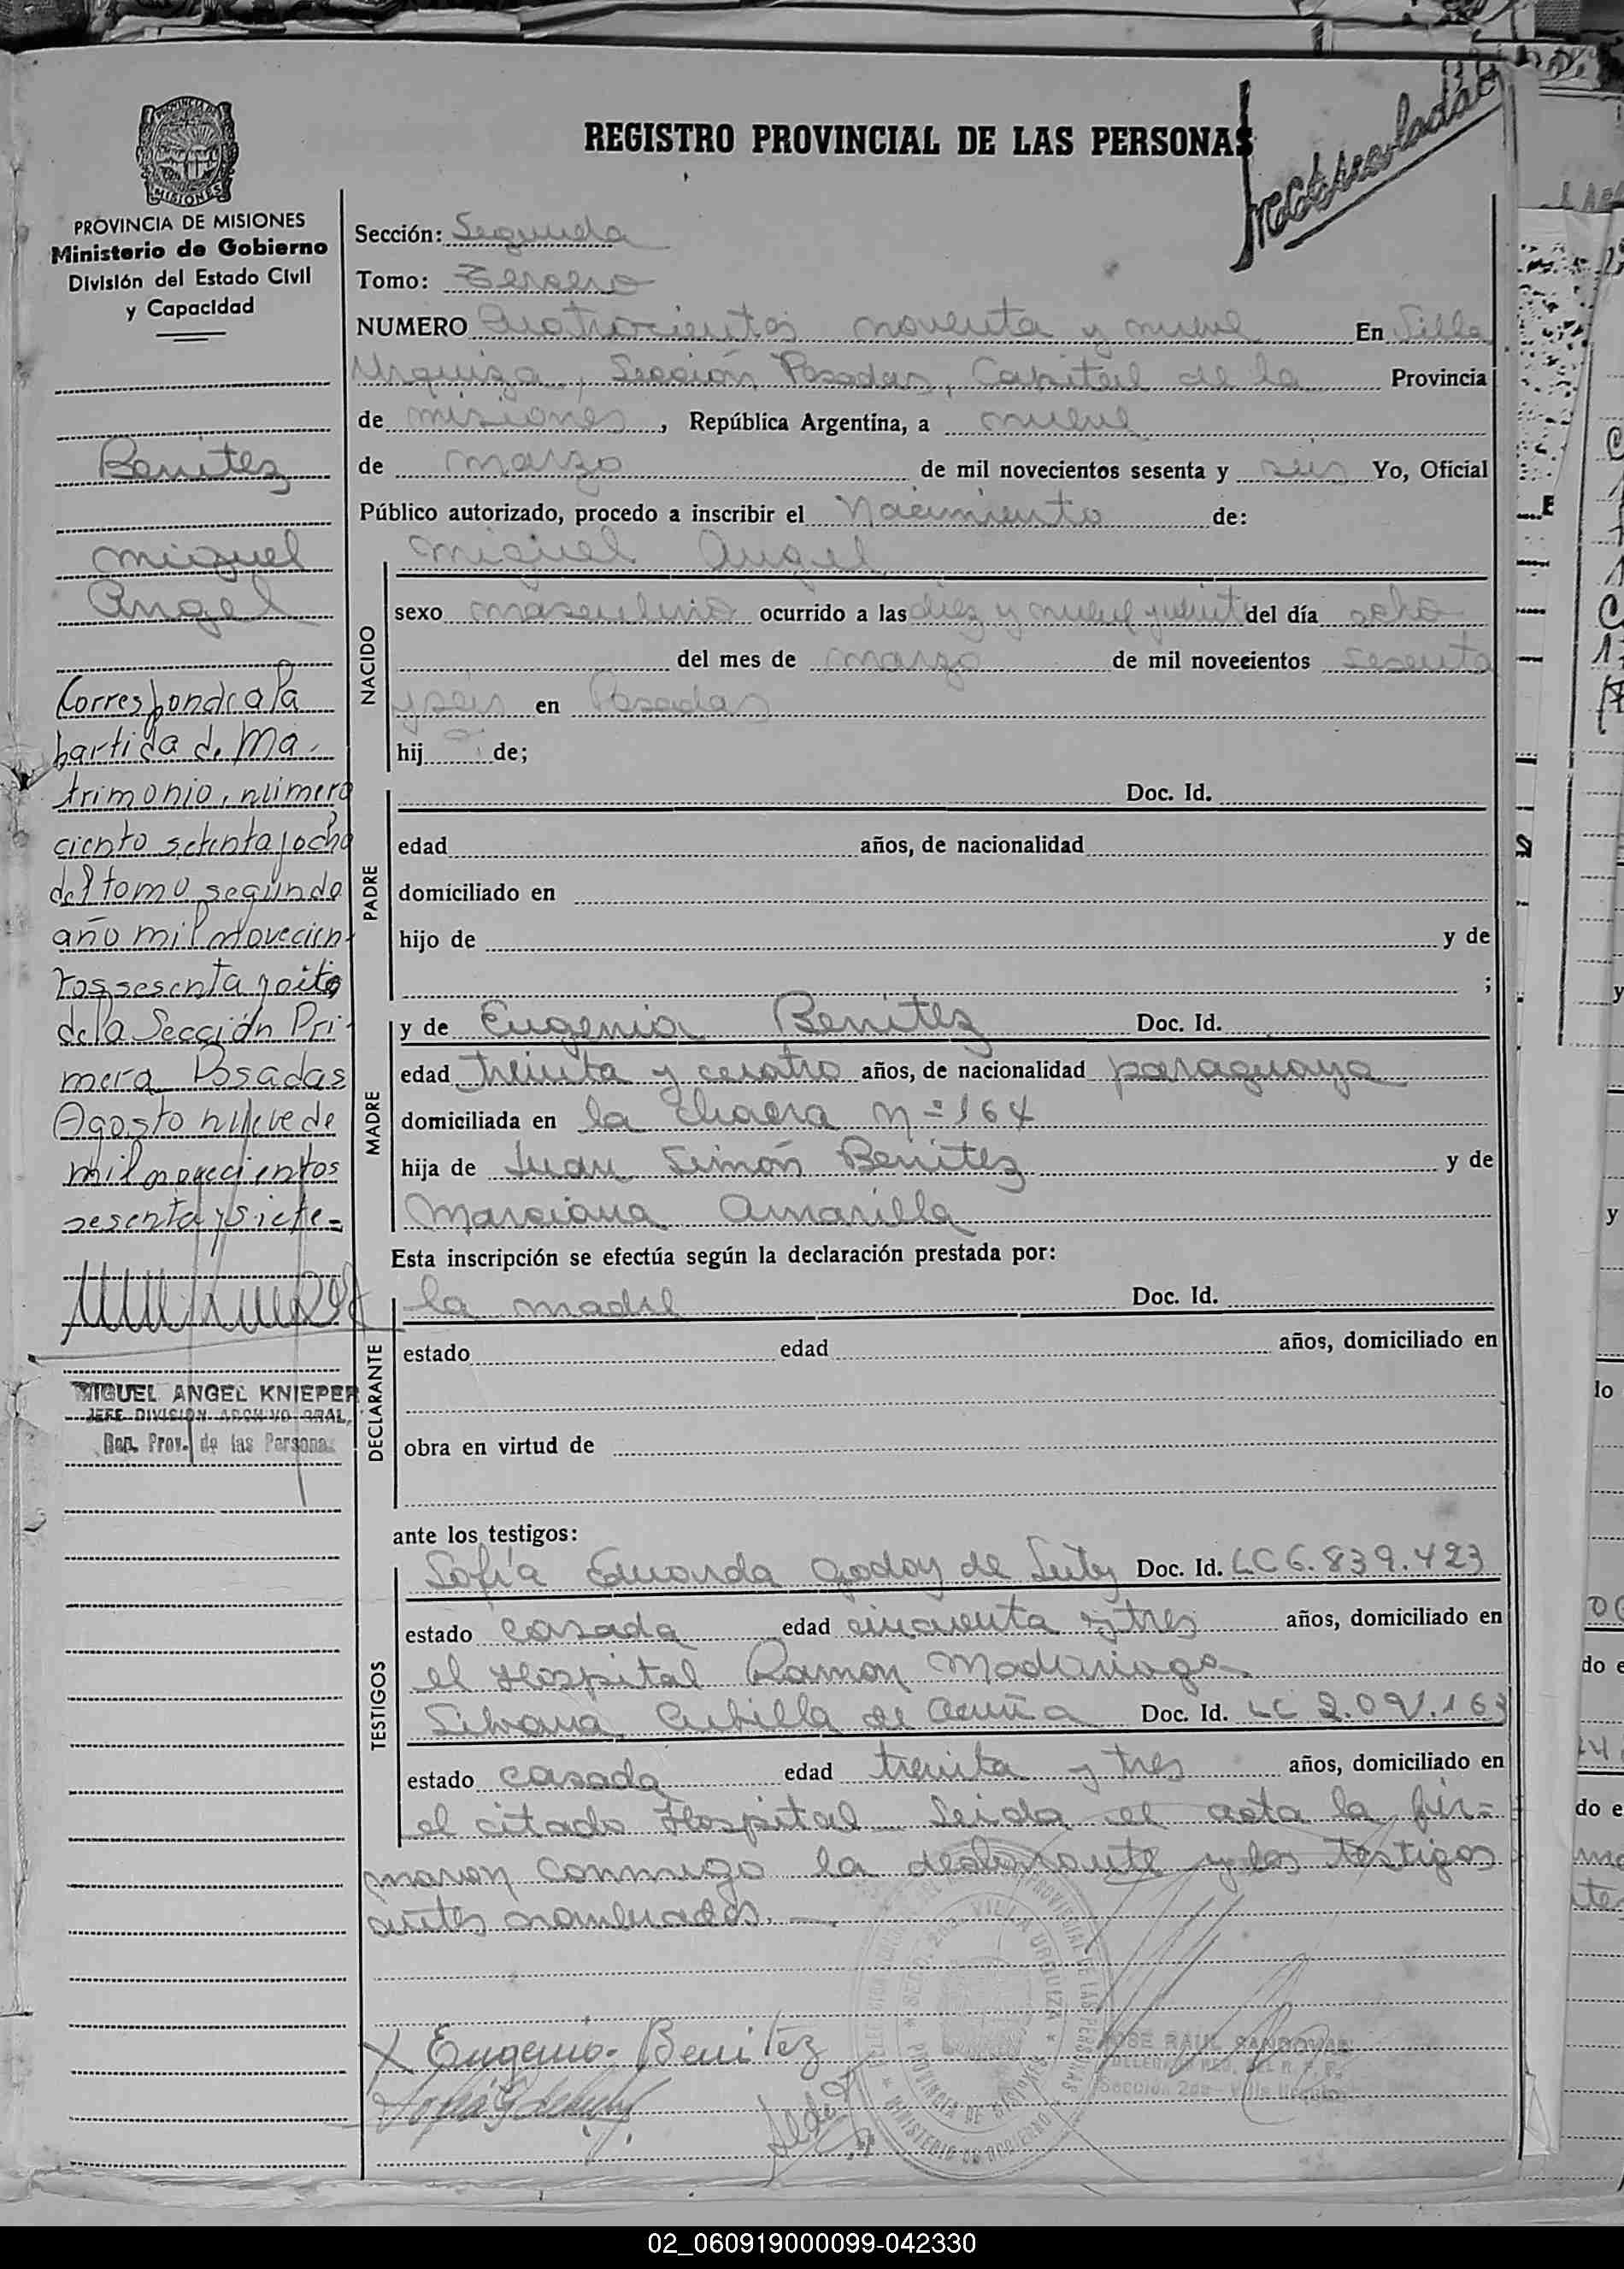 REGISTRO PROVINCIAL DE LAS PERSONAS
MISIONES
PROVINCIA DE MISIONES
Ministerio de Gobierno
División del Estado Civil
y Capacidad
Benitez
Miguel
Angel
Corresponde a la
partida de Ma-
trimonio, número
ciento setenta y ocho
del tomo segundo
año mil novecien-
tos sesenta y
de la Sección Pri-
mera Posadas
Agosto nueve de
mil novecientos
sesenta y siete=
MIGUEL ANGEL KNIEPER
JEFE DIVISION ARCHIVO GRAL.
Reg. Prov. de las Personas
Sección: Segunda
Tomo: Tercero
NUMERO Cuatrocientos noventa y nueve En Villa
Urquiza, Sección Posadas, Capital de la Provincia
de misiones, República Argentina, a nueve
de marzo de mil novecientos sesenta y seis Yo, Oficial
Público autorizado, procedo a inscribir el Nacimiento de:
NACIDO
Miguel Angel
sexo masculino ocurrido a las diez y nueve y veinte del día ocho
del mes de marzo de mil novecientos sesenta
y seis en Posadas
hij o de;
PADRE
Doc. Id.
edad años, de nacionalidad
domiciliado en
hijo de y de
;
MADRE
y de Eugenia Benitez Doc. Id.
edad treinta y cuatro años, de nacionalidad paraguaya
domiciliada en la Chacra Nº 164
hija de Juan Simón Benitez y de
Marciana Amarilla
Esta inscripción se efectúa según la declaración prestada por:
DECLARANTE
la madre Doc. Id.
estado edad años, domiciliado en
obra en virtud de
ante los testigos:
TESTIGOS
Sofía Eduarda Godoy de Doc. Id. LC 6.839.423
estado casada edad cincuenta y tres años, domiciliado en
el Hospital Ramon Madariaga
Silvana Cubilla de Acuña Doc. Id. LC 2.091.163
estado casada edad treinta y tres años, domiciliado en
el citado Hospital Leida el acta la fir=
maron conmigo la declarante y los testigos
antes nombrados.
X Eugenia Benitez
SECC. 2da. VILLA URQUIZA
PROVINCIA DE MISIONES
MINISTERIO DE GOBIERNO
JOSE RAUL SANDOVAL
Sección 2da - Villa Urquiza
02_060919000099-042330